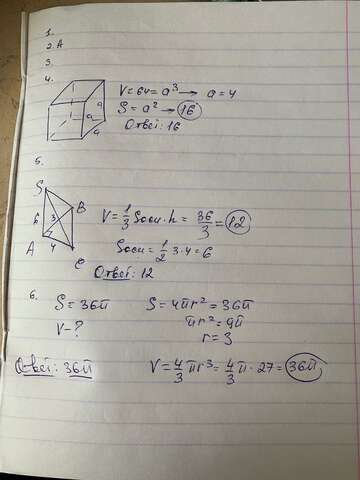 1.
2. A
3.
4.
V = 64 = a³ → a = 4
S = a² → 16
Ответ: 16
a
a
a
5.
S
B
6
3
A
4
C
V = 1/3 Sосн · h = 36/3 = 12
Sосн = 1/2 3·4 = 6
Ответ: 12
6.
S = 36π
S = 4πr² = 36π
V - ?
πr² = 9π
r = 3
Ответ: 36π
V = 4/3 πr³ = 4/3 π · 27 = 36π